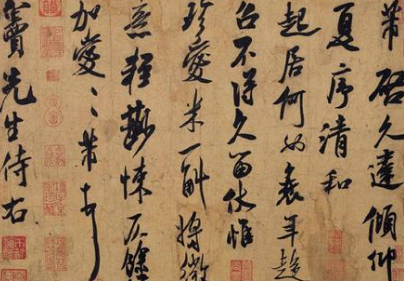 芾啓久違傾仰
夏序清和
起居何如衰年趨
召不得久留伏惟
珍愛米一斛將微
意輕尠悚仄餘
加愛〻芾頓首
竇先生侍右